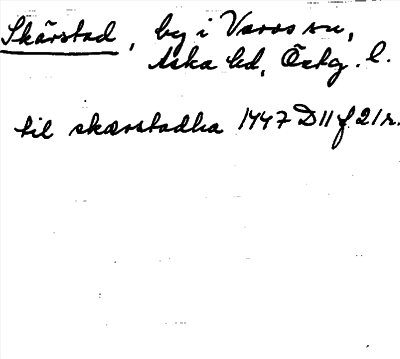 Skärstad, by i Varvs sn,
Aska hd, Östg. l.
til skærstadha 1447 D 11 f 21 r.